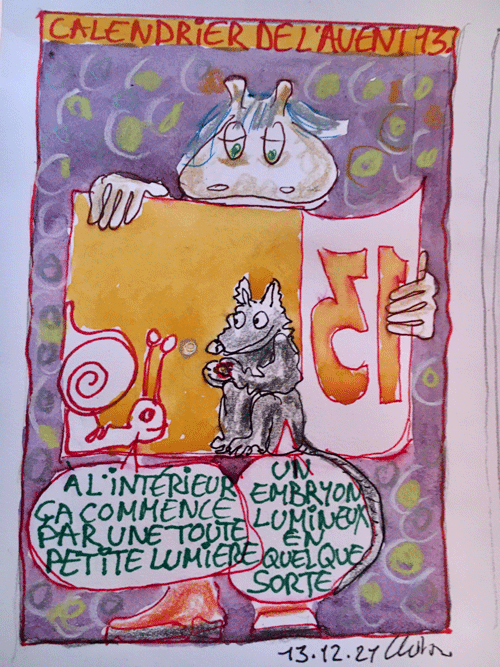 CALENDRIER DE L'AVENT 13.
13
A L'INTÉRIEUR
ÇA COMMENCE
PAR UNE TOUTE
PETITE LUMIERE
UN
EMBRYON
LUMINEUX
EN
QUELQUE
SORTE
13.12.21